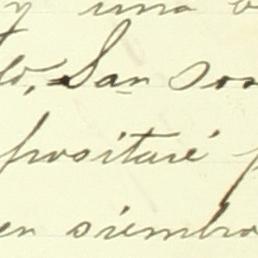 y una
lo, San
positaré
en siembra